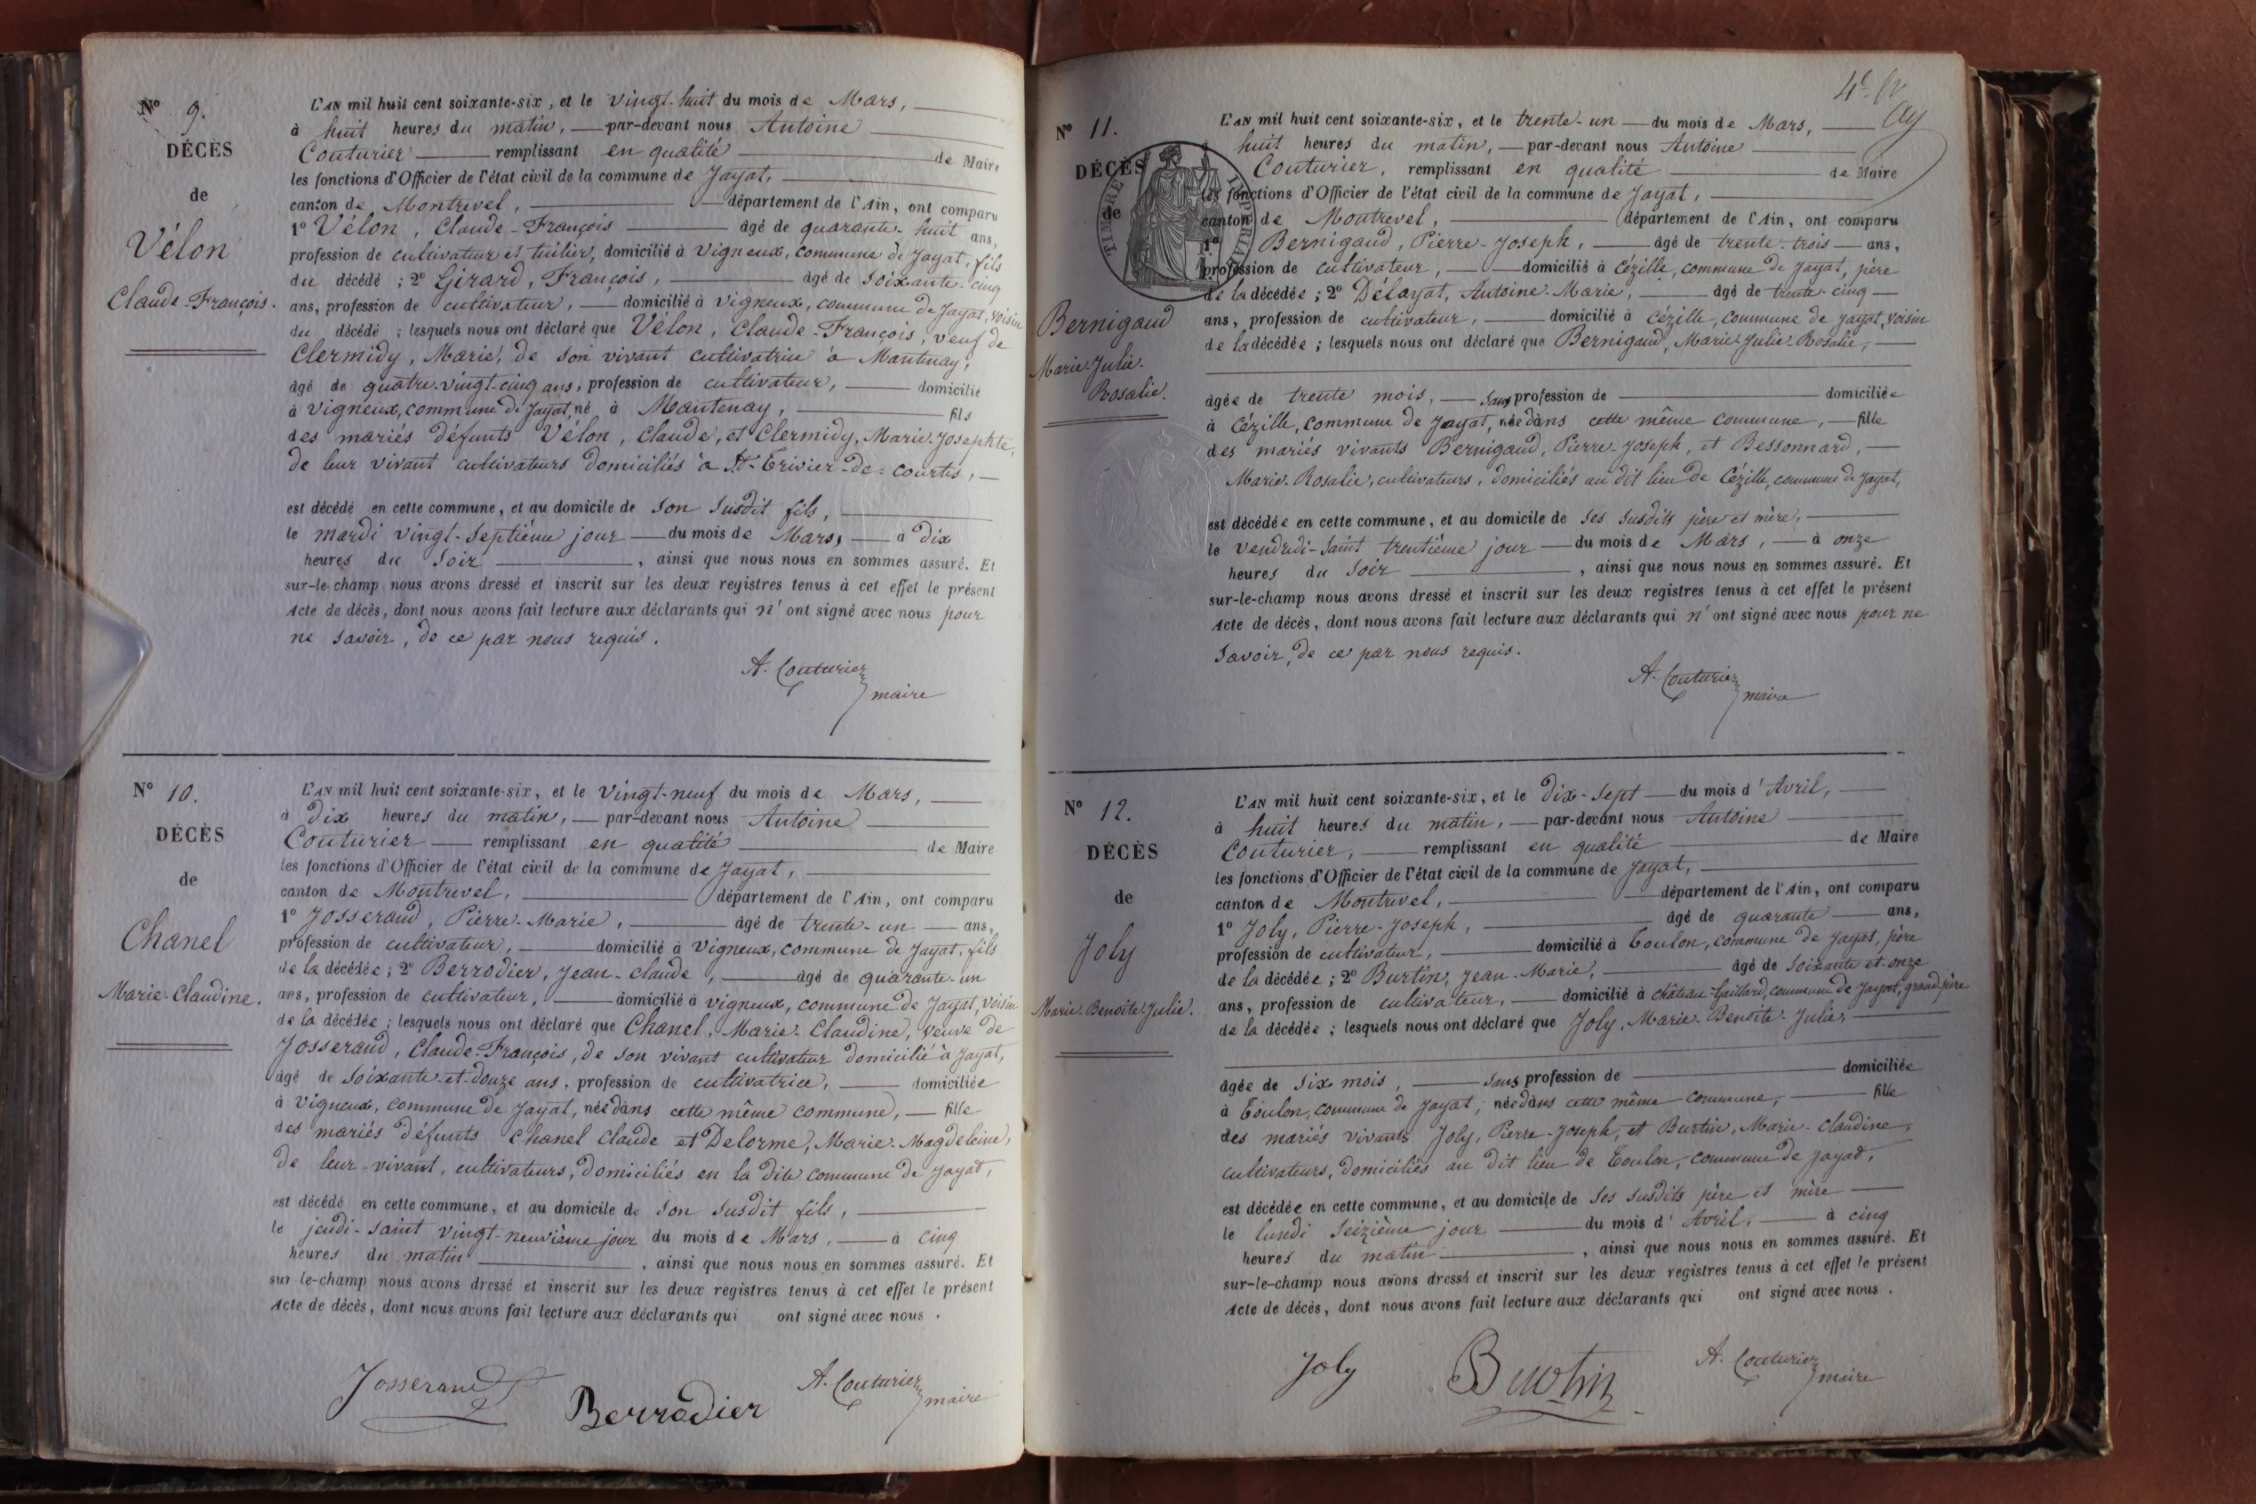 N° 9.
DÉCÈS
de
Vélon
Claude-François.
L'AN mil huit cent soixante-six, et le vingt-huit du mois de Mars,
à huit heures du matin, par-devant nous Antoine
Couturier remplissant en qualité de Maire
les fonctions d'Officier de l'état civil de la commune de Jayat,
canton de Montrevel, département de l'Ain, ont comparu
1° Vélon, Claude-François âgé de quarante-huit ans,
profession de cultivateur et tuilier, domicilié à Vigneux, commune de Jayat, fils
du décédé ; 2° Gérard, François, âgé de soixante-cinq
ans, profession de cultivateur, domicilié à Vigneux, commune de Jayat, voisin
du décédé ; lesquels nous ont déclaré que Vélon, Claude-François, veuf de
Clermidy, Marie, de son vivant cultivatrice à Mantenay,
âgé de quatre-vingt-cinq ans, profession de cultivateur, domicilié
à Vigneux, commune de Jayat, né à Mantenay, fils
des mariés défunts Vélon, Claude, et Clermidy, Marie-Josephte,
de leur vivant cultivateurs domiciliés à St-Trivier-de-Courtes,
est décédé en cette commune, et au domicile de son susdit fils,
le mardi vingt-septième jour du mois de Mars, à dix
heures du soir, ainsi que nous nous en sommes assuré. Et
sur-le-champ nous avons dressé et inscrit sur les deux registres tenus à cet effet le présent
Acte de décès, dont nous avons fait lecture aux déclarants qui n'ont signé avec nous pour
ne savoir, de ce par nous requis.
A. Couturier
maire
N° 10.
DÉCÈS
de
Chanel
Marie-Claudine.
L'AN mil huit cent soixante-six, et le vingt-neuf du mois de Mars,
à dix heures du matin, par-devant nous Antoine
Couturier remplissant en qualité de Maire
les fonctions d'Officier de l'état civil de la commune de Jayat,
canton de Montrevel, département de l'Ain, ont comparu
1° Josserand, Pierre-Marie, âgé de trente-un ans,
profession de cultivateur, domicilié à Vigneux, commune de Jayat, fils
de la décédée ; 2° Berrodier, Jean-Claude, âgé de quarante-un
ans, profession de cultivateur, domicilié à Vigneux, commune de Jayat, voisin
de la décédée ; lesquels nous ont déclaré que Chanel, Marie-Claudine, veuve de
Josserand, Claude-François, de son vivant cultivateur domicilié à Jayat,
âgé de soixante-et-douze ans, profession de cultivatrice, domiciliée
à Vigneux, commune de Jayat, née dans cette même commune, fille
des mariés défunts Chanel Claude et Delorme, Marie-Magdeleine,
de leur vivant, cultivateurs, domiciliés en la dite commune de Jayat,
est décédé en cette commune, et au domicile de son susdit fils,
le jeudi-saint vingt-neuvième jour du mois de Mars, à cinq
heures du matin, ainsi que nous nous en sommes assuré. Et
sur-le-champ nous avons dressé et inscrit sur les deux registres tenus à cet effet le présent
Acte de décès, dont nous avons fait lecture aux déclarants qui ont signé avec nous.
Josserand
Berrodier
A. Couturier
maire
N° 11.
DÉCÈS
de
Bernigaud
Marie-Julie-
Rosalie.
TIMBRE IMPERIAL
L'AN mil huit cent soixante-six, et le trente-un du mois de Mars,
huit heures du matin, par-devant nous Antoine
Couturier, remplissant en qualité de Maire
les fonctions d'Officier de l'état civil de la commune de Jayat,
canton de Montrevel, département de l'Ain, ont comparu
1° Bernigaud, Pierre-Joseph, âgé de trente-trois ans,
profession de cultivateur, domicilié à Cézille, commune de Jayat, père
de la décédée ; 2° Délayat, Antoine-Marie, âgé de trente-cinq
ans, profession de cultivateur, domicilié à Cézille, commune de Jayat, voisin
de la décédée ; lesquels nous ont déclaré que Bernigaud, Marie-Julie-Rosalie,
âgée de trente mois, sans profession de domiciliée
à Cézille, commune de Jayat, née dans cette même commune, fille
des mariés vivants Bernigaud, Pierre-Joseph, et Bessonnard,
Marie-Rosalie, cultivateurs, domiciliés au dit lieu de Cézille, commune de Jayat,
est décédée en cette commune, et au domicile de ses susdits père et mère,
le Vendredi-Saint trentième jour du mois de Mars, à onze
heures du soir, ainsi que nous nous en sommes assuré. Et
sur-le-champ nous avons dressé et inscrit sur les deux registres tenus à cet effet le présent
Acte de décès, dont nous avons fait lecture aux déclarants qui n'ont signé avec nous pour ne
savoir, de ce par nous requis.
A. Couturier
maire
N° 12.
DÉCÈS
de
Joly
Marie-Benoite-Julie.
L'AN mil huit cent soixante-six, et le dix-sept du mois d'Avril,
à huit heures du matin, par-devant nous Antoine
Couturier, remplissant en qualité de Maire
les fonctions d'Officier de l'état civil de la commune de Jayat,
canton de Montrevel, département de l'Ain, ont comparu
1° Joly, Pierre-Joseph, âgé de quarante ans,
profession de cultivateur, domicilié à Toulon, commune de Jayat, père
de la décédée ; 2° Burtin, Jean-Marie, âgé de soixante et onze
ans, profession de cultivateur, domicilié à Château-Gaillard, commune de Jayat, grand-père
de la décédée ; lesquels nous ont déclaré que Joly, Marie-Benoite-Julie,
âgée de six mois, sans profession de domiciliée
à Toulon, commune de Jayat, née dans cette même commune, fille
des mariés vivants Joly, Pierre-Joseph, et Burtin, Marie-Claudine,
cultivateurs, domiciliés au dit lieu de Toulon, commune de Jayat,
est décédée en cette commune, et au domicile de ses susdits père et mère
le lundi seizième jour du mois d'Avril, à cinq
heures du matin, ainsi que nous nous en sommes assuré. Et
sur-le-champ nous avons dressé et inscrit sur les deux registres tenus à cet effet le présent
Acte de décès, dont nous avons fait lecture aux déclarants qui ont signé avec nous.
Joly
Burtin
A. Couturier
maire